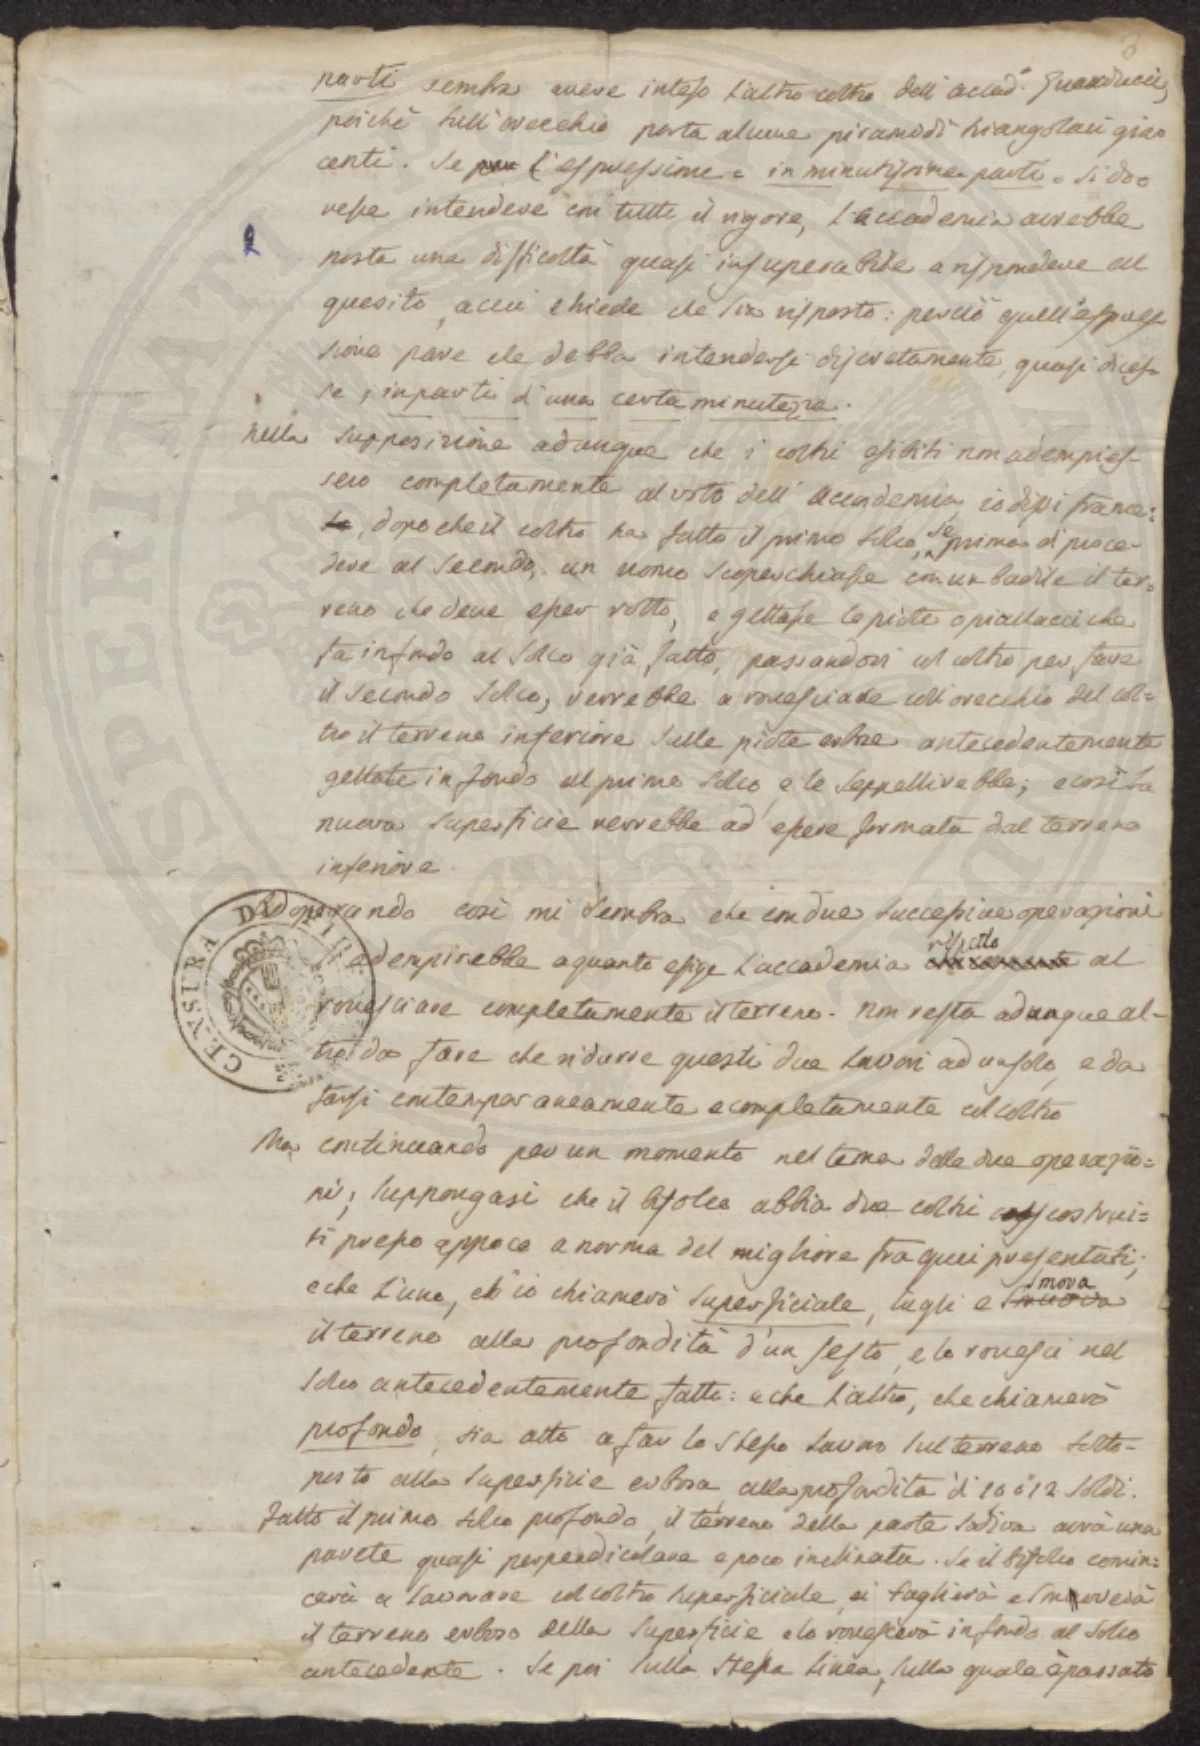 3
parti sembra avere inteso l'altro coltro dell'accad.º Guarducci,
poichè sull'orecchio porta alcune piramidi triangolari gia=
centi. Se l'espressione = in minutissime parti = si do=
vesse intendere con tutto il rigore, l'accademia avrebbe
posta una difficoltà quasi insuperabile a rispondere al
quesito, a cui chiede che sia risposto: perciò quell'espres=
sione pare che debba intendersi discretamente, quasi dices=
se, in parti d'una certa minutezza.
Nella supposizione adunque che i coltri esibiti non adempies=
sero completamente al voto dell'Accademia, io dissi
, dopo che il coltro ha fatto il primo solco, se prima di proce=
dere al secondo, un uomo scoperchiasse con un badile il ter=
reno che deve esser rotto, e gettasse le piote o piallacci che
fa in fondo al solco già fatto, passandovi col coltro per fare
il secondo solco, verrebbe a rovesciare coll'orecchio del col=
tro il terreno inferiore sulle piote erbose antecedentemente
gettate in fondo al primo solco, e le seppellirebbe; e così la
nuova superficie verrebbe ad essere formata dal terreno
inferiore.
Adoperando così mi sembra che con due successive operazioni
si adempirebbe a quanto esige l'accademia rispetto al
rovesciare completamente il terreno. Non resta adunque al=
tro da fare che ridurre questi due lavori ad un solo, e da
farsi contemporaneamente e completamente col coltro
Ma continuando per un momento nel tema delle due operazio=
ni; suppongasi che il bifolco abbia due coltri costrui=
ti presso appoco a norma del migliore fra quei presentati;
e che l'uno, ch'io chiamerò superficiale, tagli e smova
il terreno alla profondità d'un sesto, e lo rovesci nel
solco antecedentemente fatto: e che l'altro, che chiamerò
profondo, sia atto a far lo stesso lavoro sul terreno sotto=
posto alla superficie erbosa, alla profondità di 10 o 12 soldi.
Fatto il primo solco profondo, il terreno della parte sodiva avrà una
parete quasi perpendicolare e poco inclinata. Se il bifolco comin=
cerà a lavorare col coltro superficiale, ei taglierà e smoverà
il terreno erboso della superficie e lo rovescerà in fondo al solco
antecedente. Se poi sulla stessa linea, sulla quale è passato
CENSURA DI
PROSPERITATI PUBLICAE